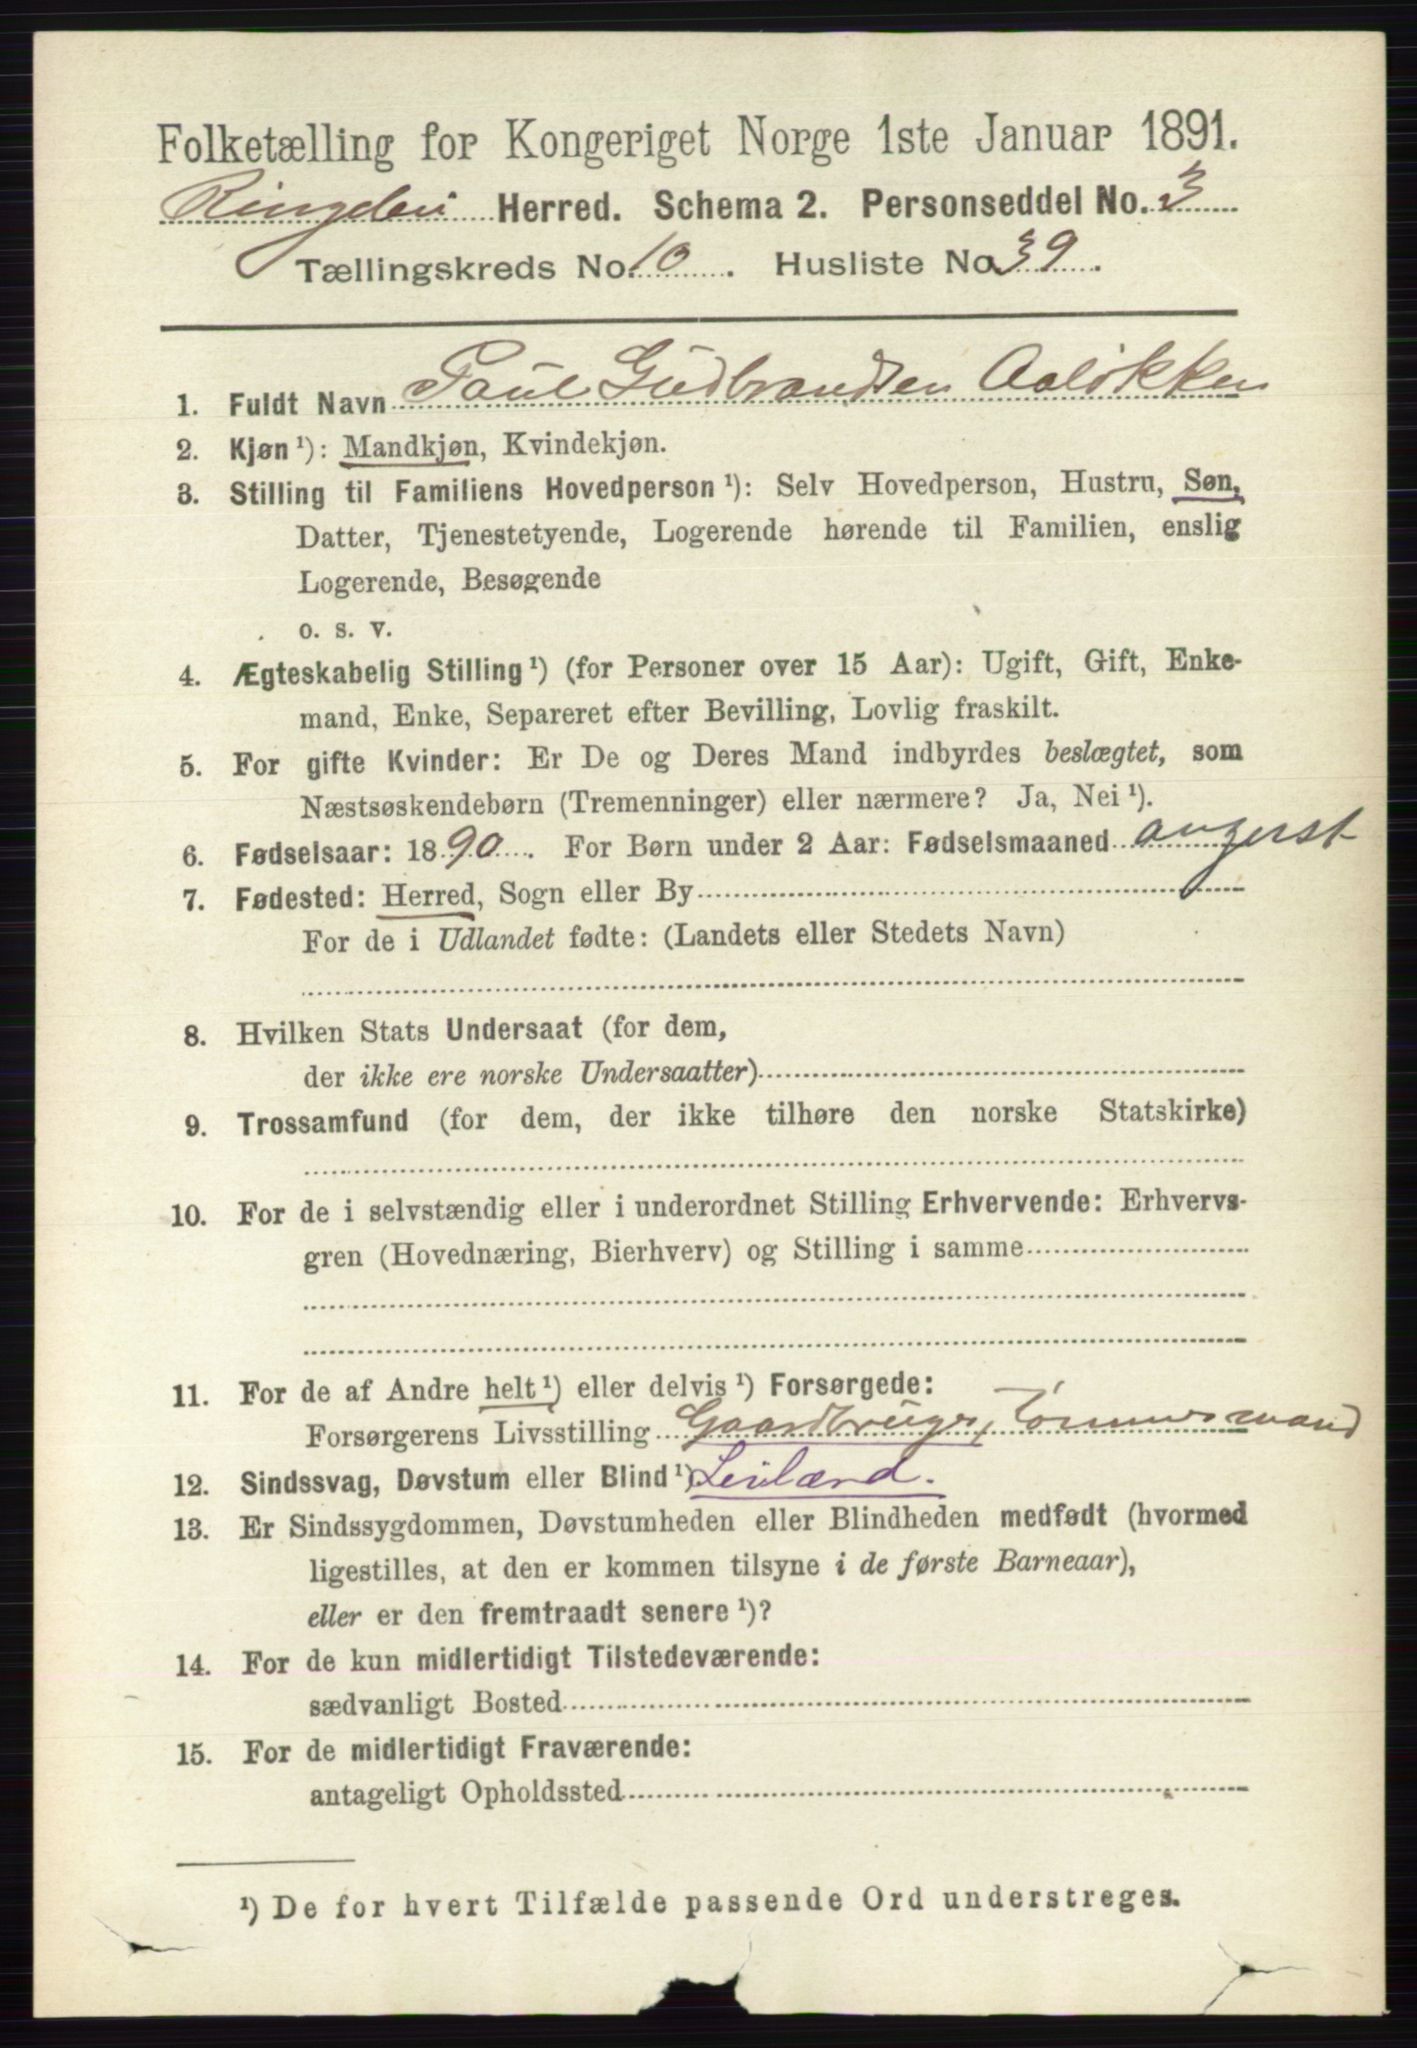 Folketælling for Kongeriget Norge 1ste Januar 1891.
Ringebu Herred. Schema 2. Personseddel No. 3
Tællingskreds No. 10. Husliste No. 39.
1. Fuldt Navn Paul Gudbrandsen Aaløkken
2. Kjøn ¹): Mandkjøn, Kvindekjøn.
3. Stilling til Familiens Hovedperson ¹): Selv Hovedperson, Hustru, Søn,
Datter, Tjenestetyende, Logerende hørende til Familien, enslig
Logerende, Besøgende
o. s. v.
4. Ægteskabelig Stilling ¹) (for Personer over 15 Aar): Ugift, Gift, Enke-
mand, Enke, Separeret efter Bevilling, Lovlig fraskilt.
5. For gifte Kvinder: Er De og Deres Mand indbyrdes beslægtet, som
Næstsøskendebørn (Tremenninger) eller nærmere? Ja, Nei ¹).
6. Fødselsaar: 1890. For Børn under 2 Aar: Fødselsmaaned august
7. Fødested: Herred, Sogn eller By
For de i Udlandet fødte: (Landets eller Stedets Navn)
8. Hvilken Stats Undersaat (for dem,
der ikke ere norske Undersaatter)
9. Trossamfund (for dem, der ikke tilhøre den norske Statskirke)
10. For de i selvstændig eller i underordnet Stilling Erhvervende: Erhvervs-
gren (Hovednæring, Bierhverv) og Stilling i samme
11. For de af Andre helt ¹) eller delvis ¹) Forsørgede:
Forsørgerens Livsstilling Gaardbruger, Tømmermand
12. Sindssvag, Døvstum eller Blind ¹) Leilænd.
13. Er Sindssygdommen, Døvstumheden eller Blindheden medfødt (hvormed
ligestilles, at den er kommen tilsyne i de første Barneaar),
eller er den fremtraadt senere ¹)?
14. For de kun midlertidigt Tilstedeværende:
sædvanligt Bosted
15. For de midlertidigt Fraværende:
antageligt Opholdssted
¹) De for hvert Tilfælde passende Ord understreges.